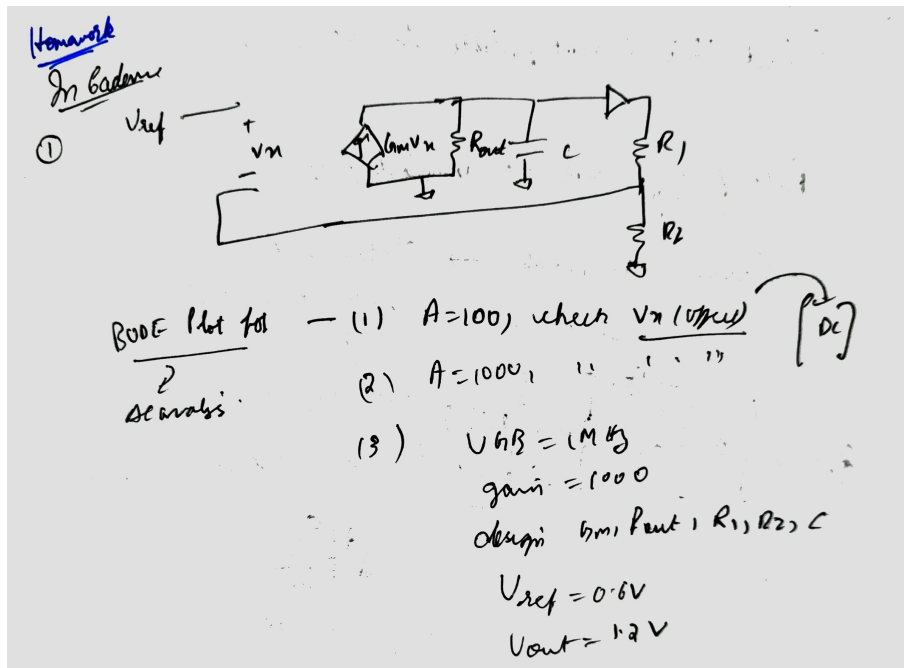 Homework
In Cadence
①
Vref
+
Vx
-
GmVx
Rout
C
R1
R2
BODE Plot for - (1) A=100, check Vx (offset) [DC]
(2) A=1000, " " "
(3) UGB = 1MHz
gain = 1000
design Gm, Rout, R1, R2, C
Vref = 0.6V
Vout = 1.2V